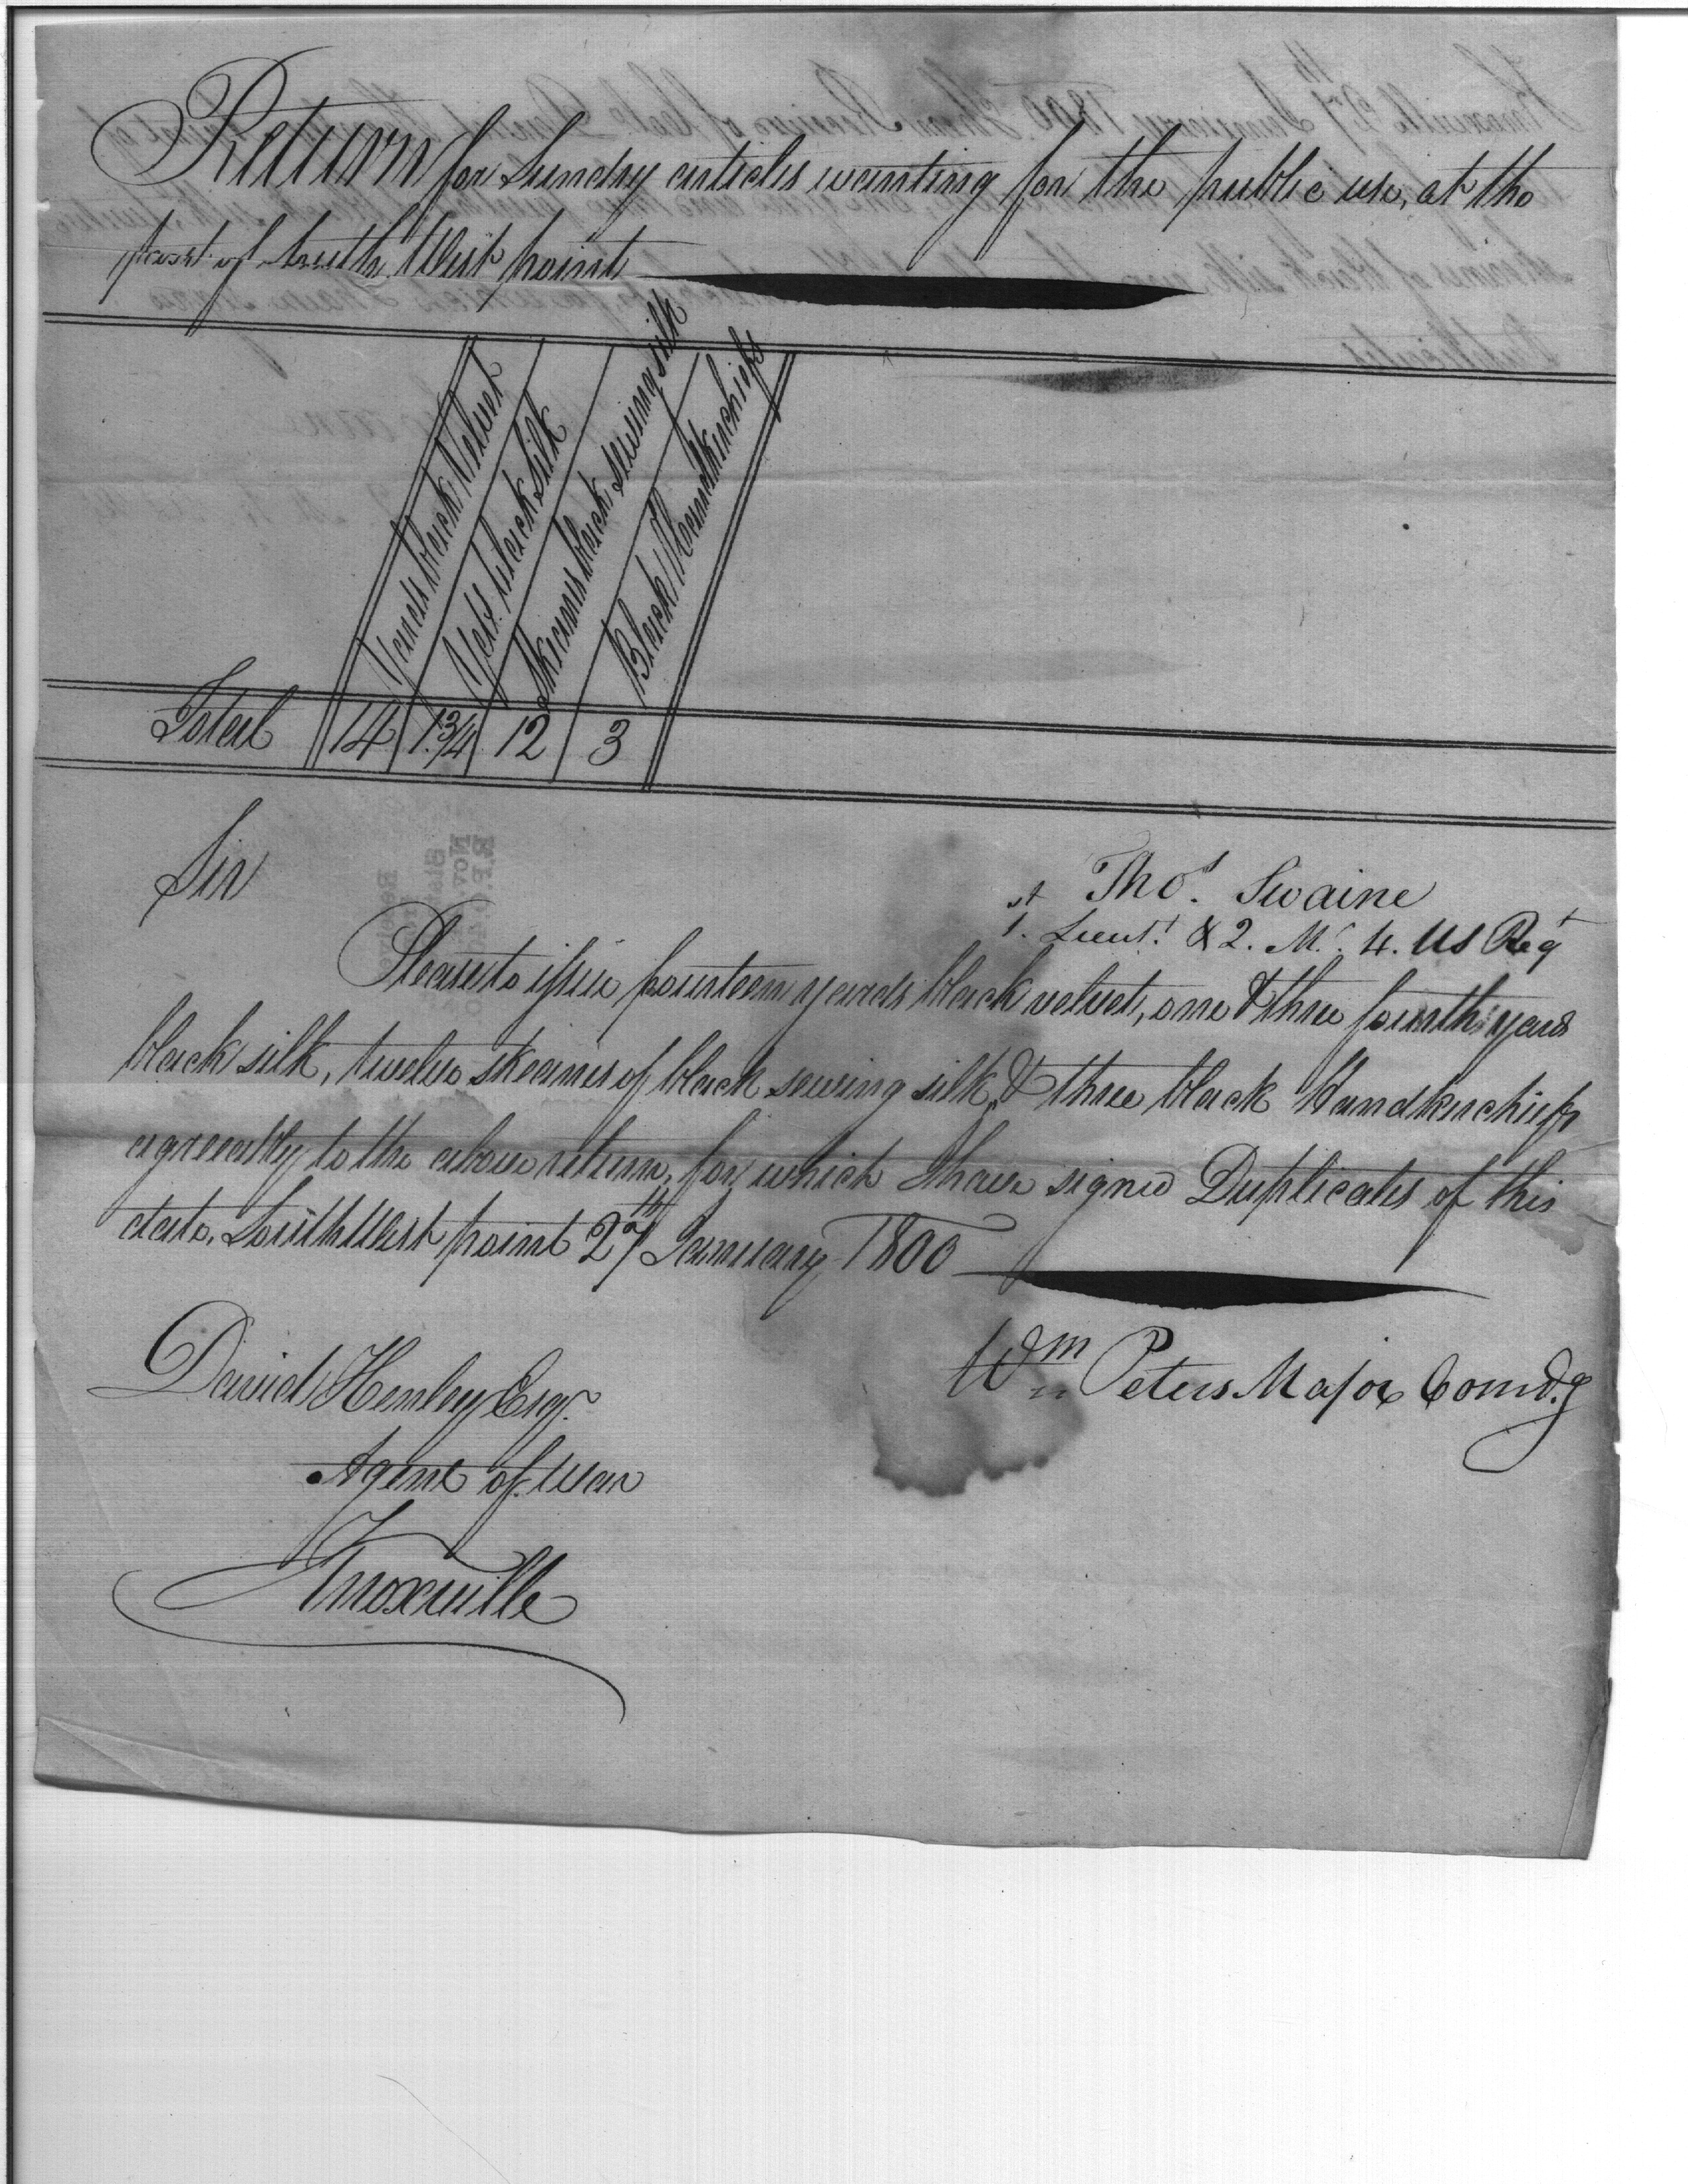 Return for Sundry articles wanting for the public use, at the
post of South West point
Yards black Velvet
Yds. black Silk
Skeans black sewing silk
Black Handkerchiefs
Total 14 1¾ 12 3
Sir
Thos. Swaine
1st. Lieut. & Q. M. 4. US Regt
Please to issue fourteen yards black velvet, one & three fourth yards
black silk, twelve skeans of black sewing silk, & three black Handkerchiefs
agreeably to the above return, for which I have signed Duplicates of this
date. South West point 27th January 1800
Wm Peters Major Comdg
David Henley Esqr.
Agent of War
Knoxville